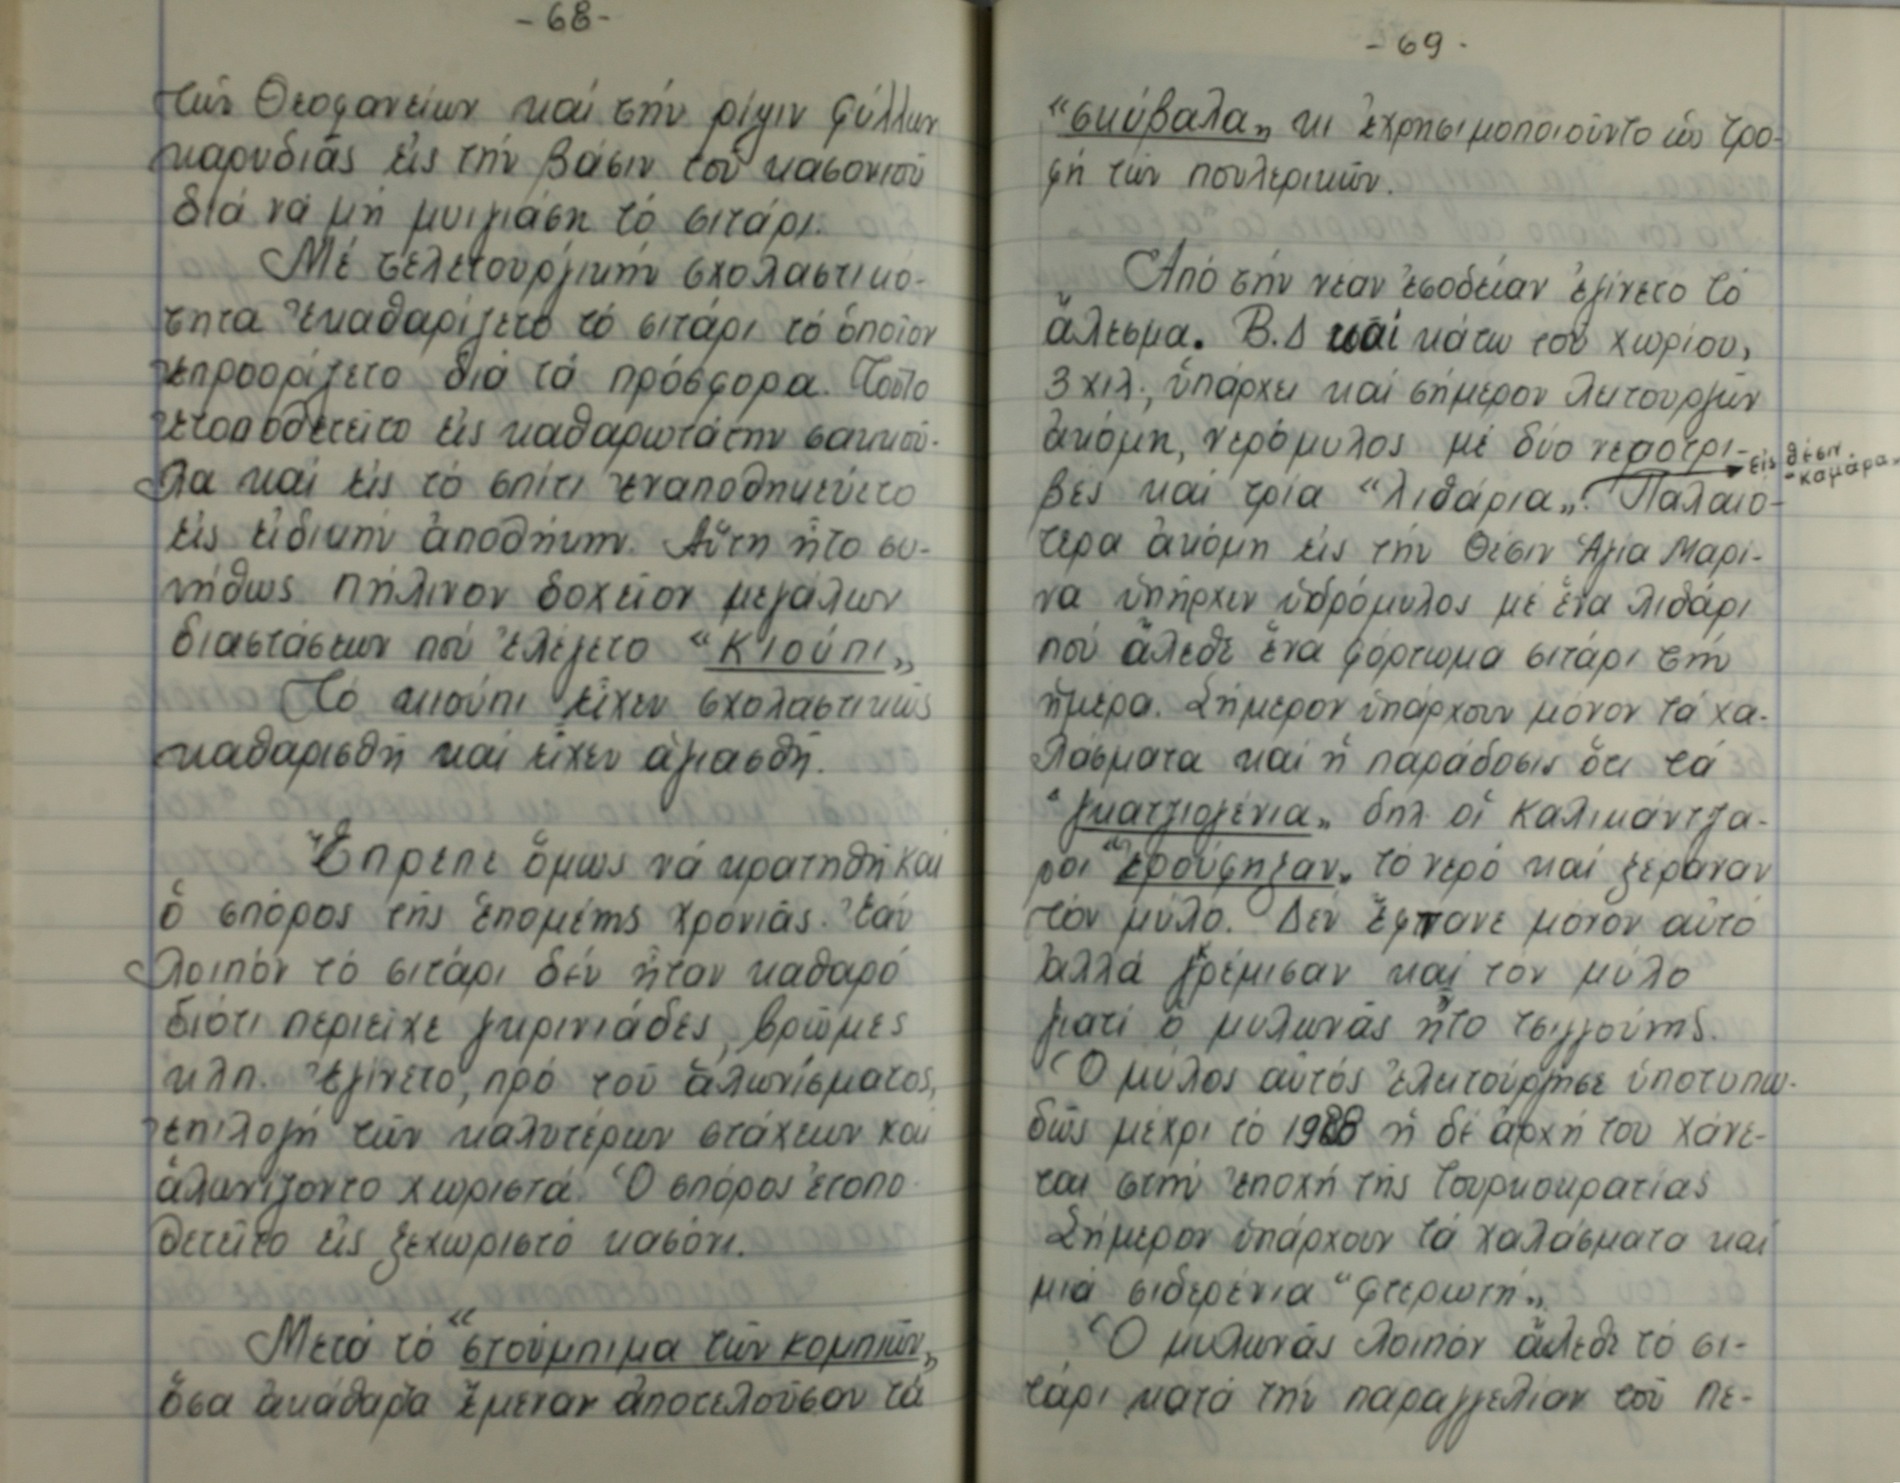 -68-
τῶν Θεοφανείων καί τήν ρίψιν φύλλων
καρυδιᾶς εἰς τήν βάσιν τοῦ κασονιοῦ
διά νά μή μυιγιάση τό σιτάρι.
Μέ τελετουργικήν σχολαστικό-
τητα ἐκαθαρίζετο τό σιτάρι τό ὁποῖον
ἐπροορίζετο διά τά πρόσφορα. Τοῦτο
ἐτοποθετεῖτο εἰς καθαρωτάτην σακκού-
λα καί εἰς τό σπίτι ἐναποθηκεύετο
εἰς εἰδικήν ἀποθήκην. Αὕτη ἦτο συ-
νήθως πήλινον δοχεῖον μεγάλων
διαστάσεων πού ἐλέγετο "Κιούπι„
Τό κιούπι εἶχεν σχολαστικῶς
καθαρισθῆ καί εἶχεν ἁγιασθῆ.
Ἔπρεπε ὅμως νά κρατηθῆ καί
ὁ σπόρος τῆς ἑπομένης χρονιᾶς. Ἐάν
λοιπόν τό σιτάρι δέν ἦταν καθαρό
διότι περιεῖχε γκρινιάδες, βρῶμες
κλπ. ἐγίνετο, πρό τοῦ ἁλωνίσματος,
ἐπιλογή τῶν καλυτέρων στάχεων καί
ἁλωνίζοντο χωριστά. Ὁ σπόρος ἐτοπο-
θετεῖτο εἰς ξεχωριστό κασόνι.
Μετά τό "στούμπιμα τῶν κομπιῶν„
ὅσα ἀκάθαρτα ἔμεναν ἀποτελοῦσαν τά
-69-
"σκύβαλα„ κι ἐχρησιμοποιοῦντο ὡς τρο-
φή τῶν πουλερικῶν.
Ἀπό τήν νέαν ἐσοδείαν ἐγίνετο τό
ἄλεσμα. Β.Δ καί κάτω τοῦ χωρίου,
3 χιλ., ὑπάρχει καί σήμερον λειτουργῶν
ἀκόμη, νερόμυλος μέ δύο νεροτρι-
βές καί τρία "λιθάρια„. Παλαιό-
εἰς θέσιν
"καμάρα„
τερα ἀκόμη εἰς τήν θέσιν Ἁγία Μαρί-
να ὑπῆρχεν ὑδρόμυλος μέ ἕνα λιθάρι
πού ἄλεθε ἕνα φόρτωμα σιτάρι τήν
ἡμέρα. Σήμερον ὑπάρχουν μόνον τά χα-
λάσματα καί ἡ παράδοσις ὅτι τά
"γκατζιογένια„ δηλ. οἱ Καλικάντζα-
ροι "ἐρούφηξαν„ τό νερό καί ξέραναν
τόν μύλο. Δέν ἔφτανε μόνον αὐτό
ἀλλά γκρέμισαν καί τόν μύλο
γιατί ὁ μυλωνᾶς ἦτο τσιγγούνης.
Ὁ μύλος αὐτός ἐλειτούργησε ὑποτυπω-
δῶς μέχρι τό 1928 ἡ δέ ἀρχή του χάνε-
ται στήν ἐποχή τῆς Τουρκοκρατίας
Σήμερον ὑπάρχουν τά χαλάσματα καί
μιά σιδερένια "φτερωτή„
Ὁ μυλωνᾶς λοιπόν ἄλεθε τό σι-
τάρι κατά τήν παραγγελίαν τοῦ πε-